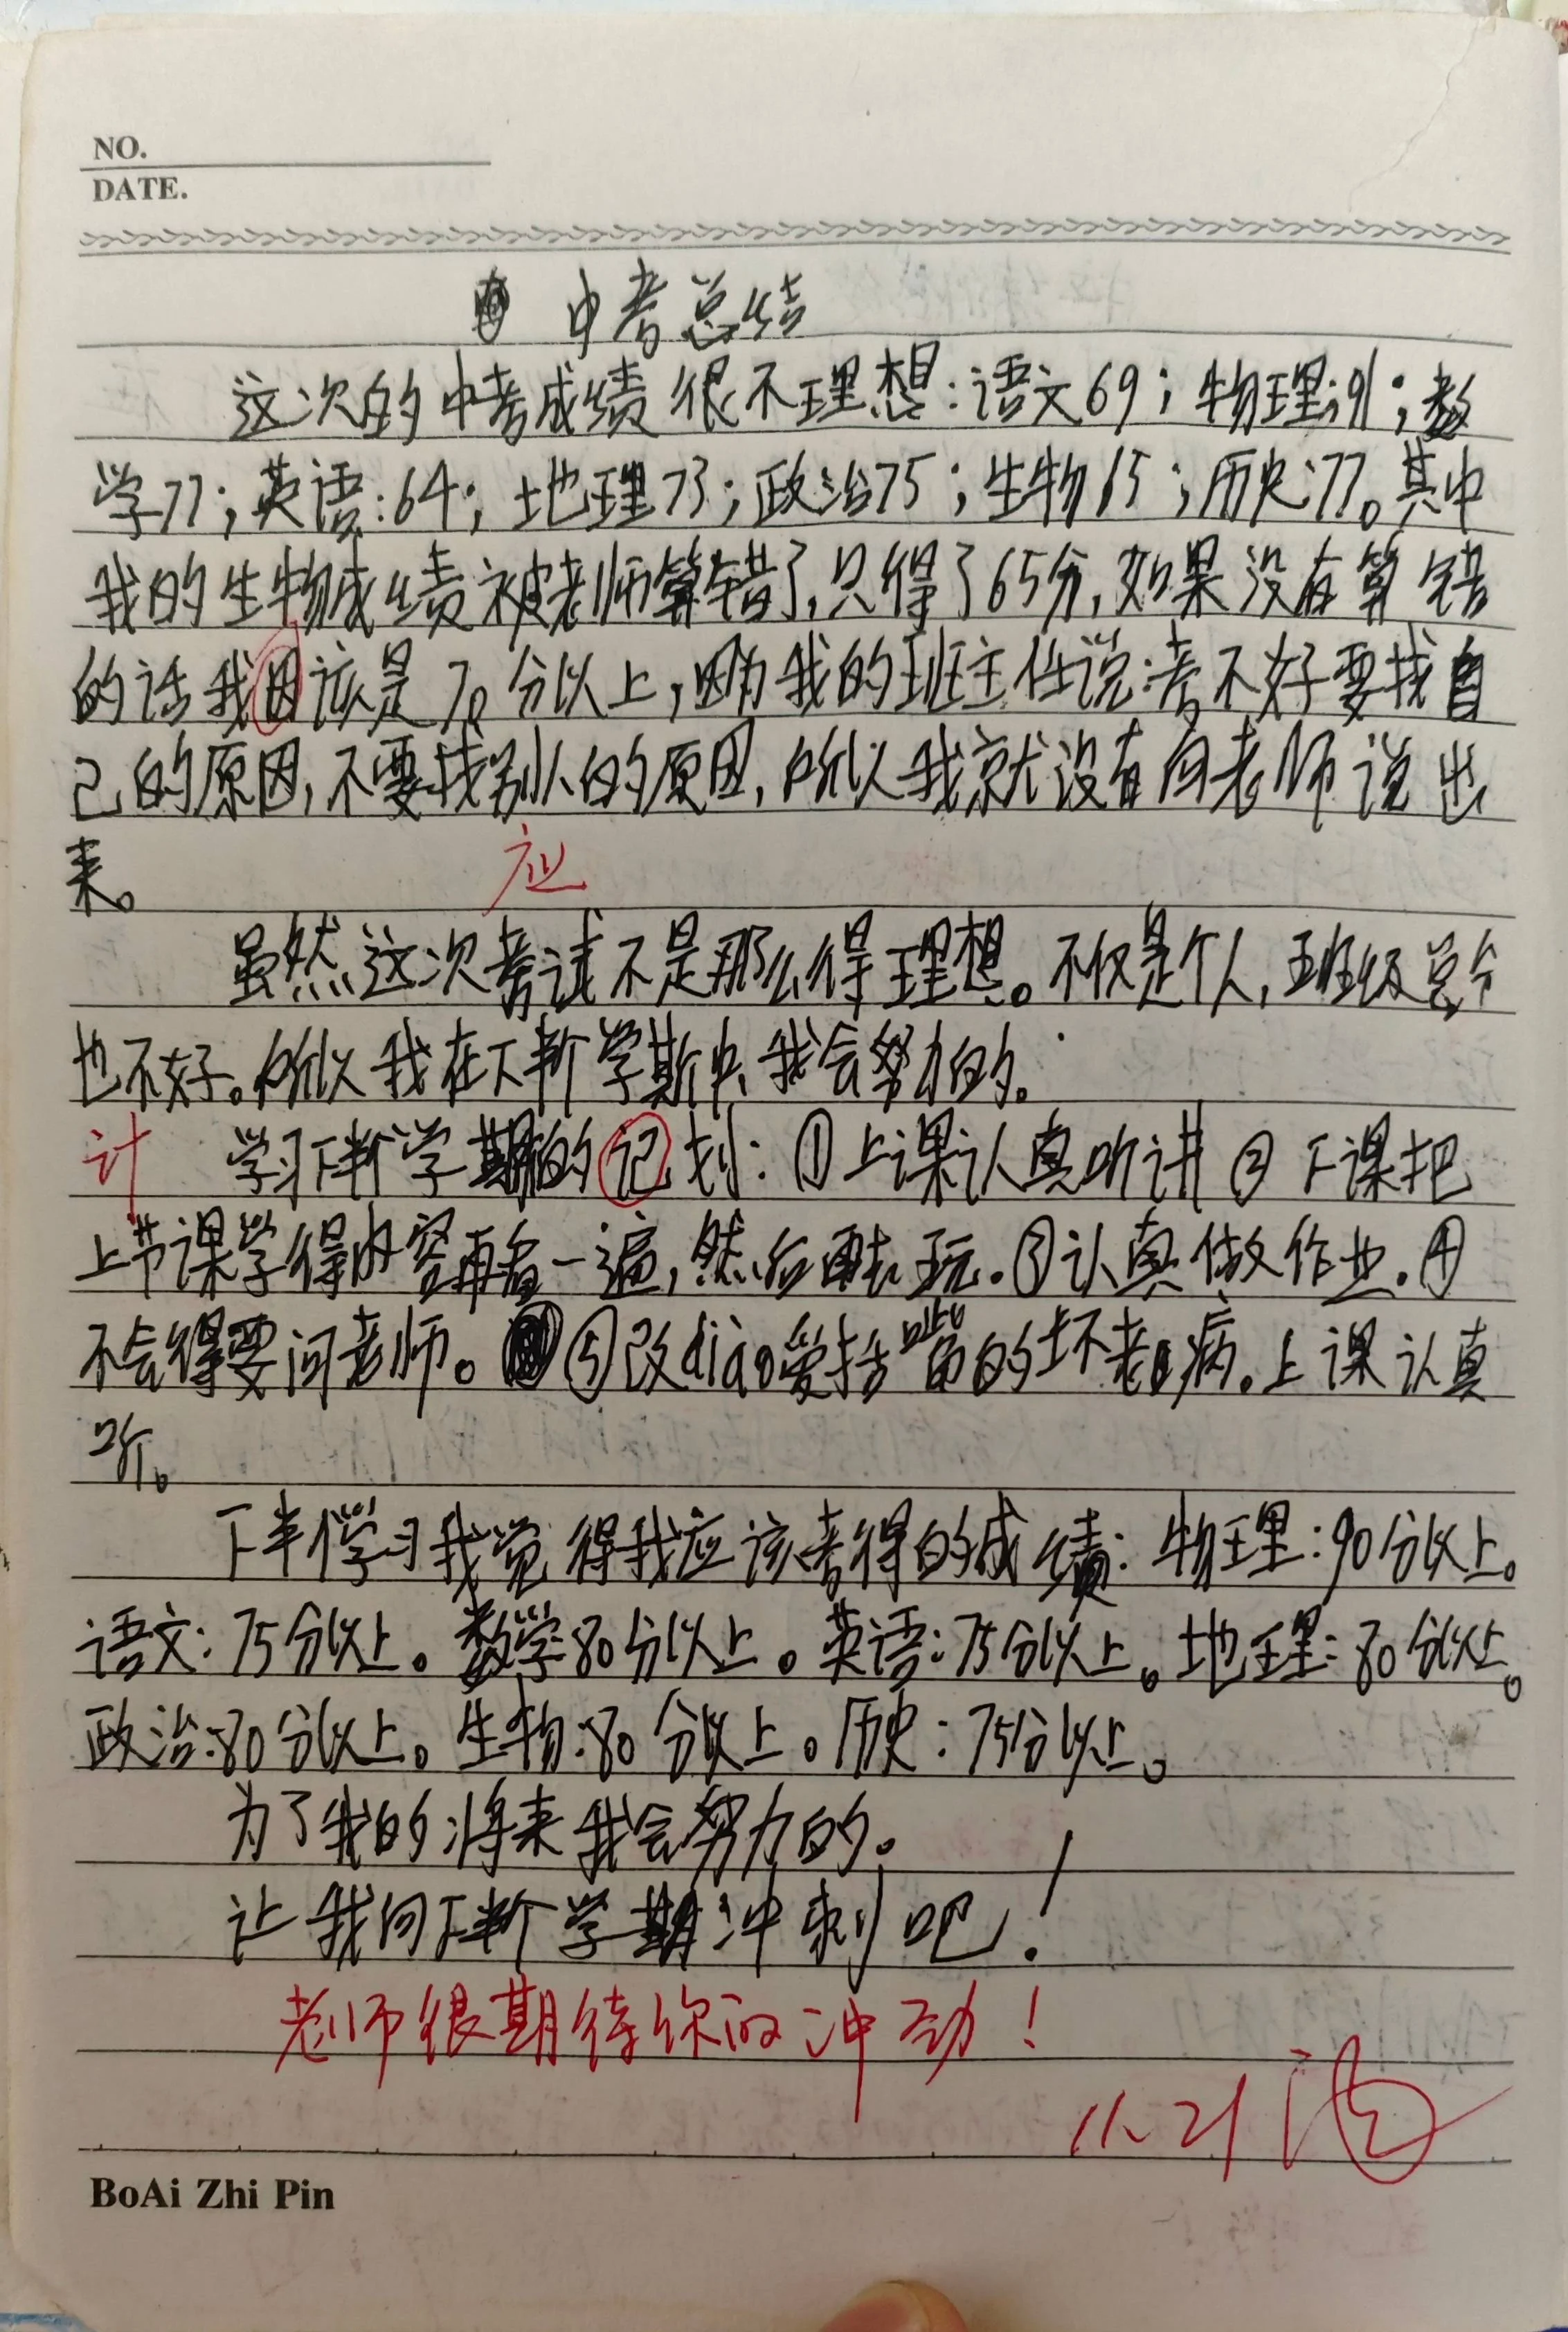 NO.
DATE.
中考总结
这次的中考成绩很不理想:语文69;物理:91;数
学77;英语:64;地理73;政治75;生物65;历史:77。其中
我的生物成绩被老师算错了,只得了65分,如果没有算错
的话我因该是70分以上,因为我的班主任说:考不好要找自
己的原因,不要找别人的原因,所以我就没有向老师说出
来。
应
虽然这次考试不是那么得理想。不仅是个人,班级总分
也不好。所以我在下半个学斯中,我会努力的。
计 学习下半个学期的记划:①上课认真听讲②下课把
上节课学得内容再看一遍,然后再去玩.③认真做作业.④
不会得要问老师。⑤改diào爱括嘴的坏老病。上课认真
听。
下半个学习我觉得我应该考得的成绩:物理:90分以上。
语文:75分以上。数学80分以上。英语:75分以上。地理:80分以上。
政治:80分以上。生物:80分以上。历史:75分以上。
为了我的将来我会努力的。
让我向下半个学期冲刺吧!
老师很期待你的冲劲!
11.21
BoAi Zhi Pin